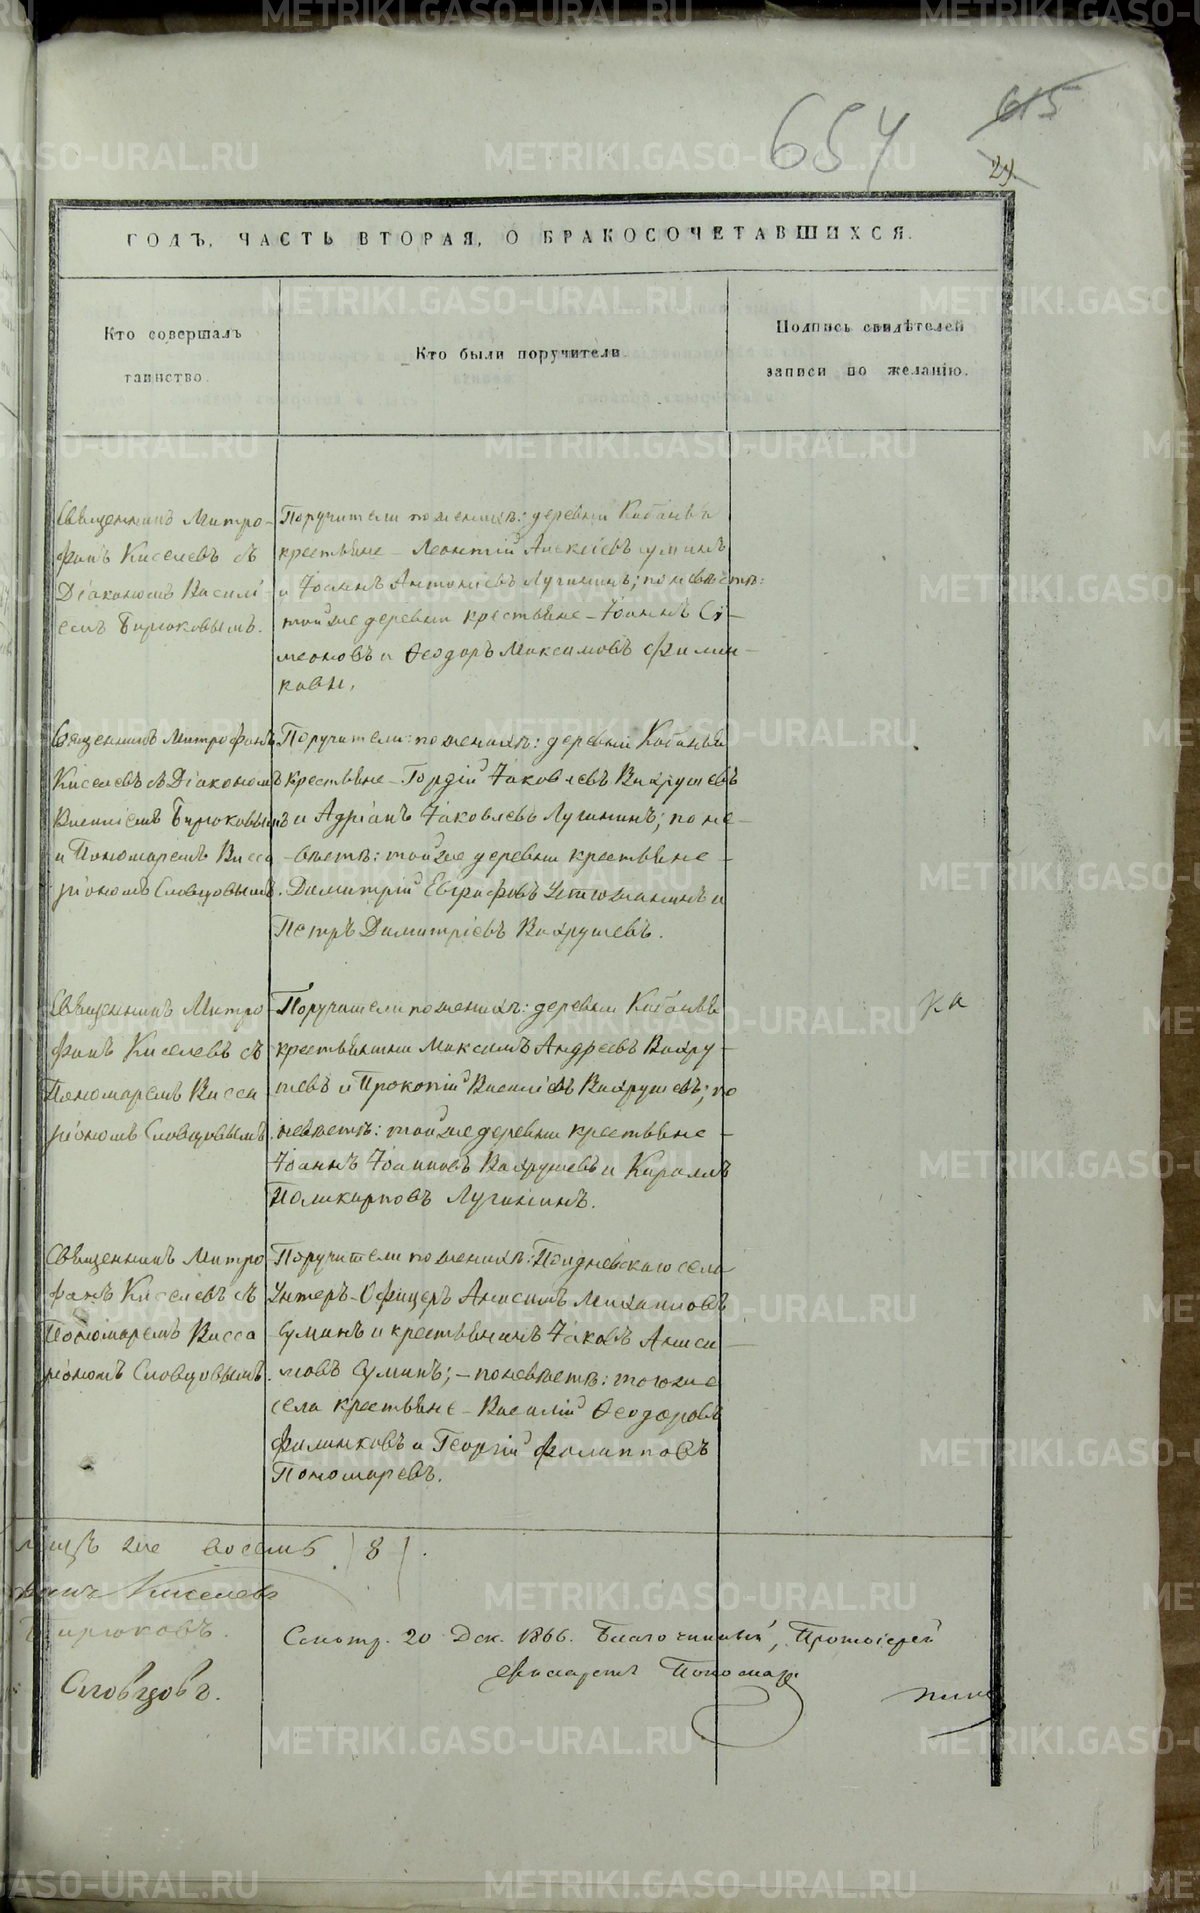 654
615
29.
ГОДЪ, ЧАСТЬ ВТОРАЯ, О БРАКОСОЧЕТАВШИХСЯ.
Кто совершалъ
таинство.
Кто были поручители.
Подпись свидѣтелей
записи по желанію.
Священникъ Митро-
фанъ Киселевъ съ
Діакономъ Василі-
емъ Бирюковымъ.
Поручители по женихѣ: деревни Кабаньей
крестьяне – Леонтій Алексѣевъ Суминъ
и Іоаннъ Антоніевъ Лугининъ; по невѣстѣ:
той же деревни крестьяне – Іоаннъ Си-
меоновъ и Ѳеодоръ Максимовъ Филин-
ковы.
Священникъ Митрофанъ
Киселевъ съ Діакономъ
Василіемъ Бирюковымъ
и Пономаремъ Висса
ріономъ Словцовымъ.
Поручители: по женихѣ: деревни Кабаньей
крестьяне – Гордій Іаковлевъ Вахрушевъ
и Адріанъ Іаковлевъ Лугининъ; по не-
вѣстѣ: той же деревни крестьяне –
Димитрій Евграфовъ Устюжанинъ и
Петръ Димитріевъ Вахрушевъ.
Священникъ Митро
фанъ Киселевъ съ
Пономаремъ Висса
ріономъ Словцовымъ.
Поручители по женихѣ: деревни Кабаньей
крестьянины Максимъ Андреевъ Вахру-
шевъ и Прокопій Василіевъ Вахрушевъ; по
невѣстѣ: той же деревни крестьяне –
Іоаннъ Іоанновъ Вахрушевъ и Кириллъ
Поликарповъ Лугининъ.
Священникъ Митро
фанъ Киселевъ съ
Пономаремъ Висса
ріономъ Словцовымъ.
Поручители по женихѣ: села
Унтеръ-Офицеръ Анисимъ Михаиловъ
Суминъ и крестьянинъ Іаковъ Аниси-
мовъ Суминъ; – по невѣстѣ: того же
села крестьяне – Василій Ѳеодоровъ
Филинковъ и Георгій Филипповъ
Пономаревъ.
же восемь (8).
Киселевъ
Бирюковъ.
Словцовъ.
Смотр. 20 Дек. 1866. Благочинный, Протоіерей
Пономар
METRIKI.GASO-URAL.RU